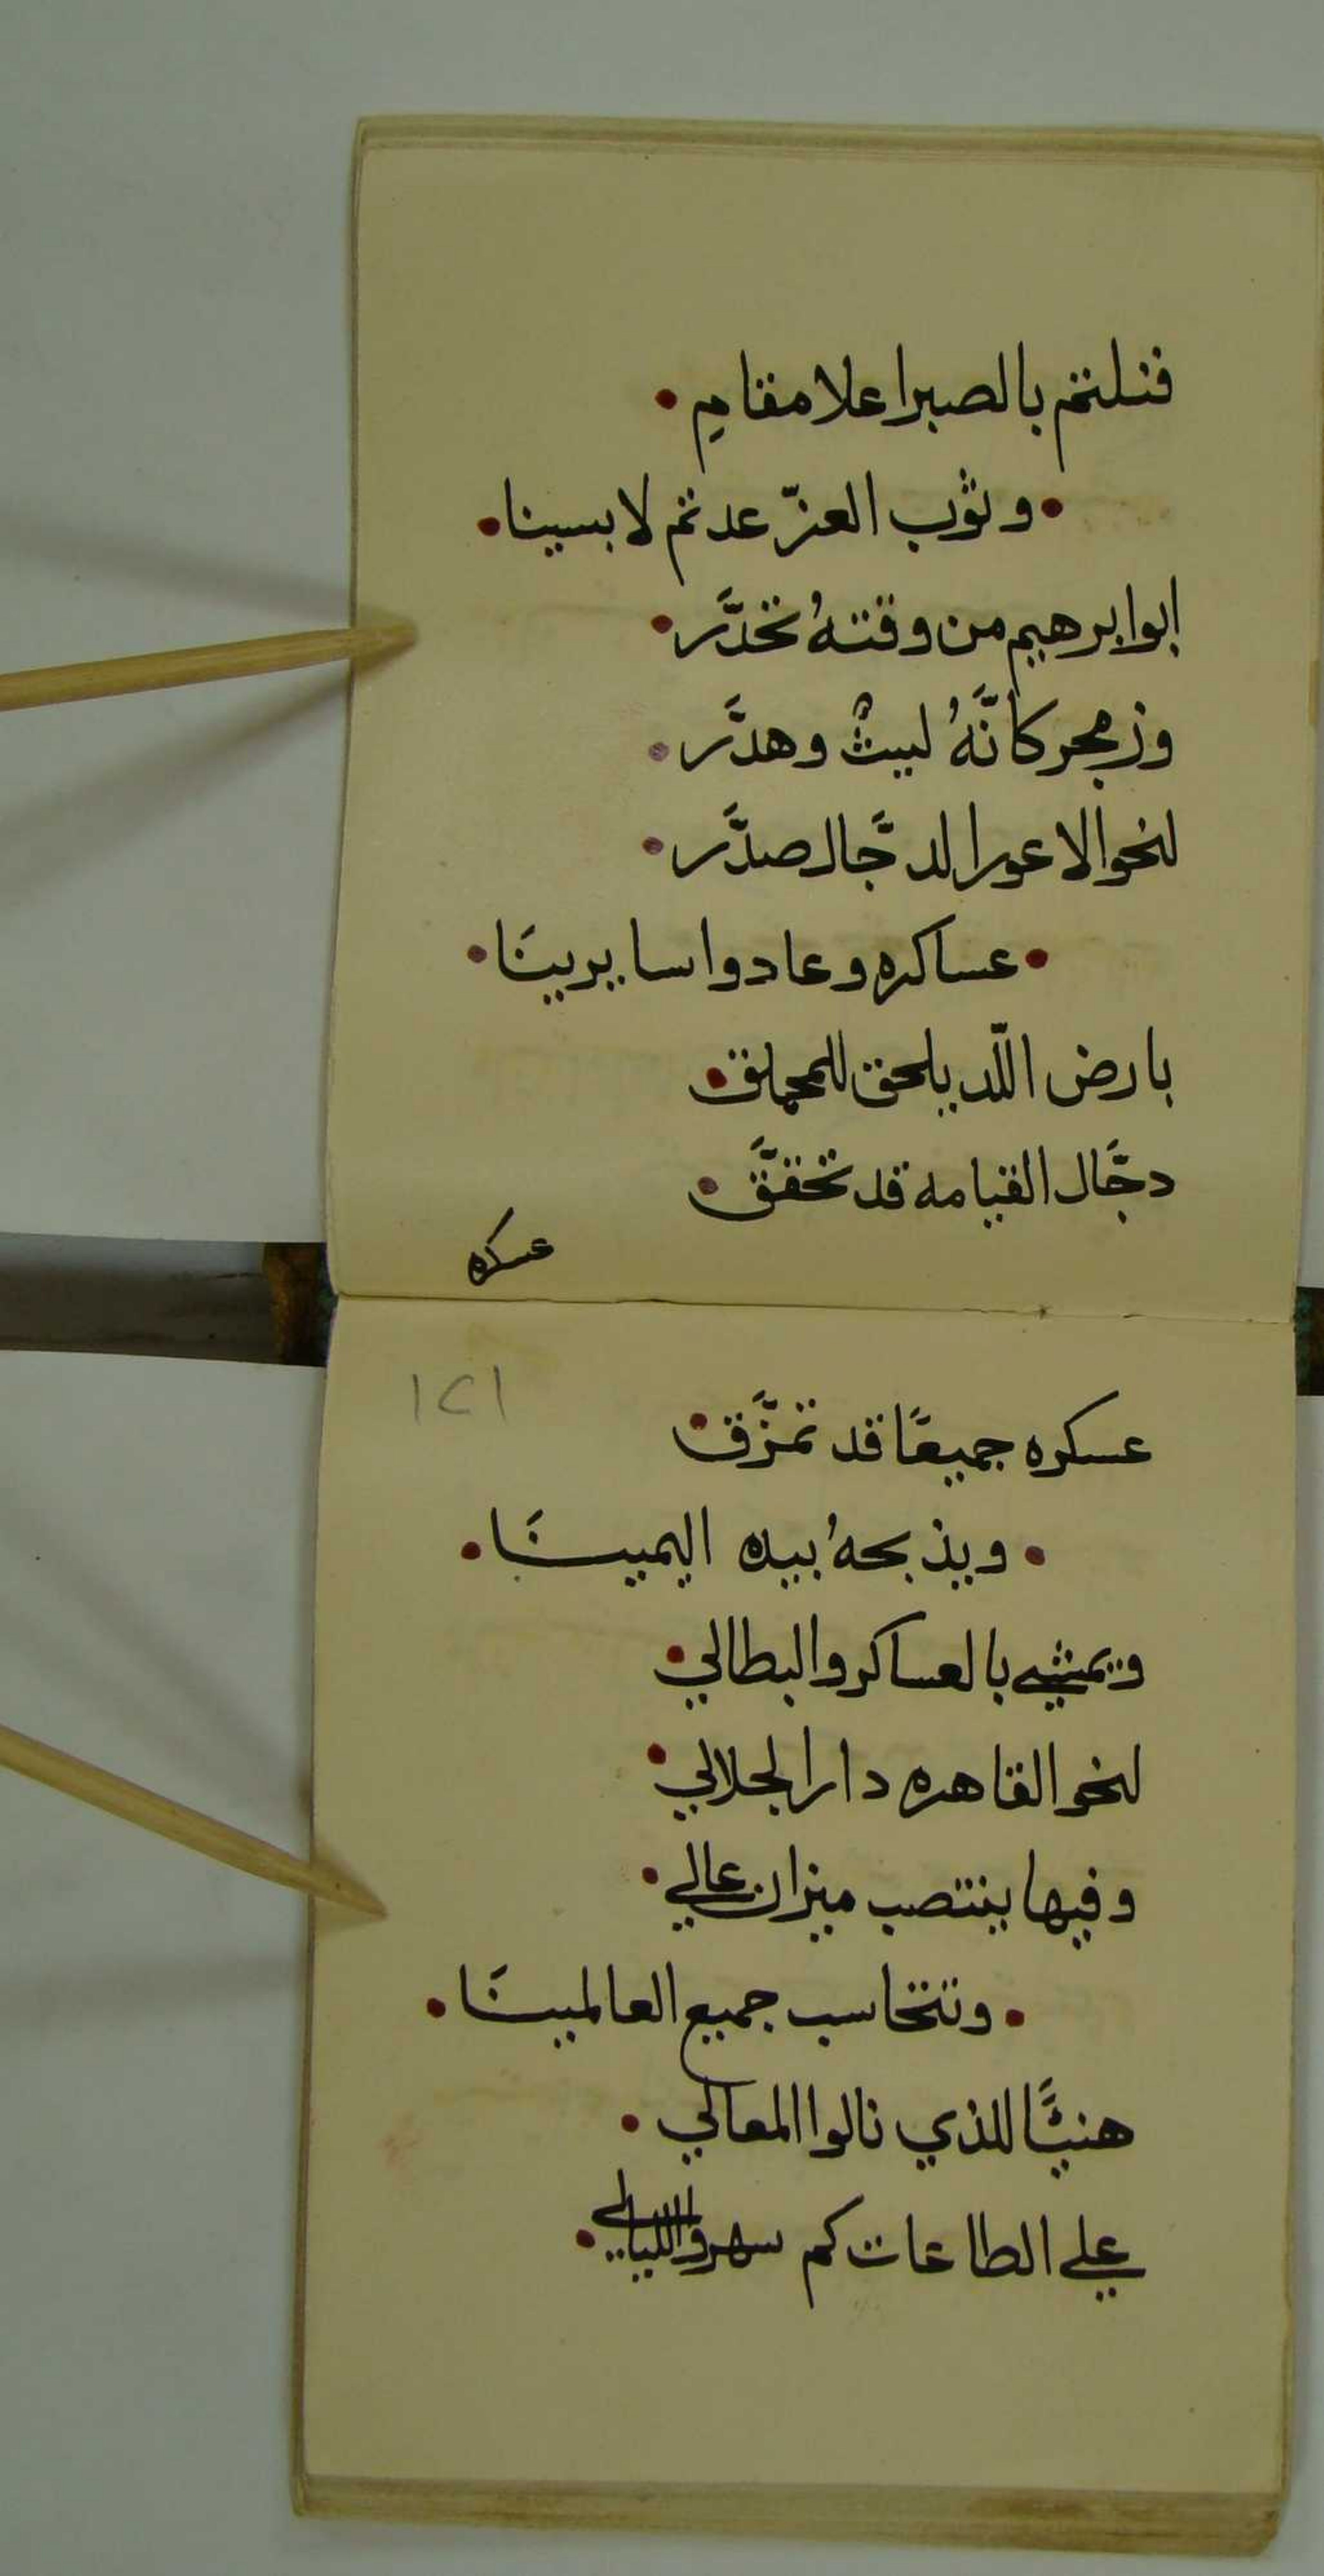 فنلتم بالصبر اعلا مقامِ
وثوب العزّ عدتم لابسينا
ابوابرهيم من وقتهُ تخدَّر
وزمجر كانَّهُ ليثٌ وهدَّر
لنحو الاعور الدجَّال صدَّر
عساكره وعادوا سايرينَا
بارض اللّد يلحق للمحلق
دجَّال القيامه قد تحقَّق
عسكره
١٢١
عسكره جميعًا قد تمزَّق
ويذبحهُ بيده اليمينَا
ويمشي بالعساكر والبطالي
لنحو القاهره دار الجلالي
وفيها ينتصب ميزان عالي
وتتحاسب جميع العالمينَا
هنيئًا للذي نالوا المعالي
علي الطاعات كم سهروا الليالي